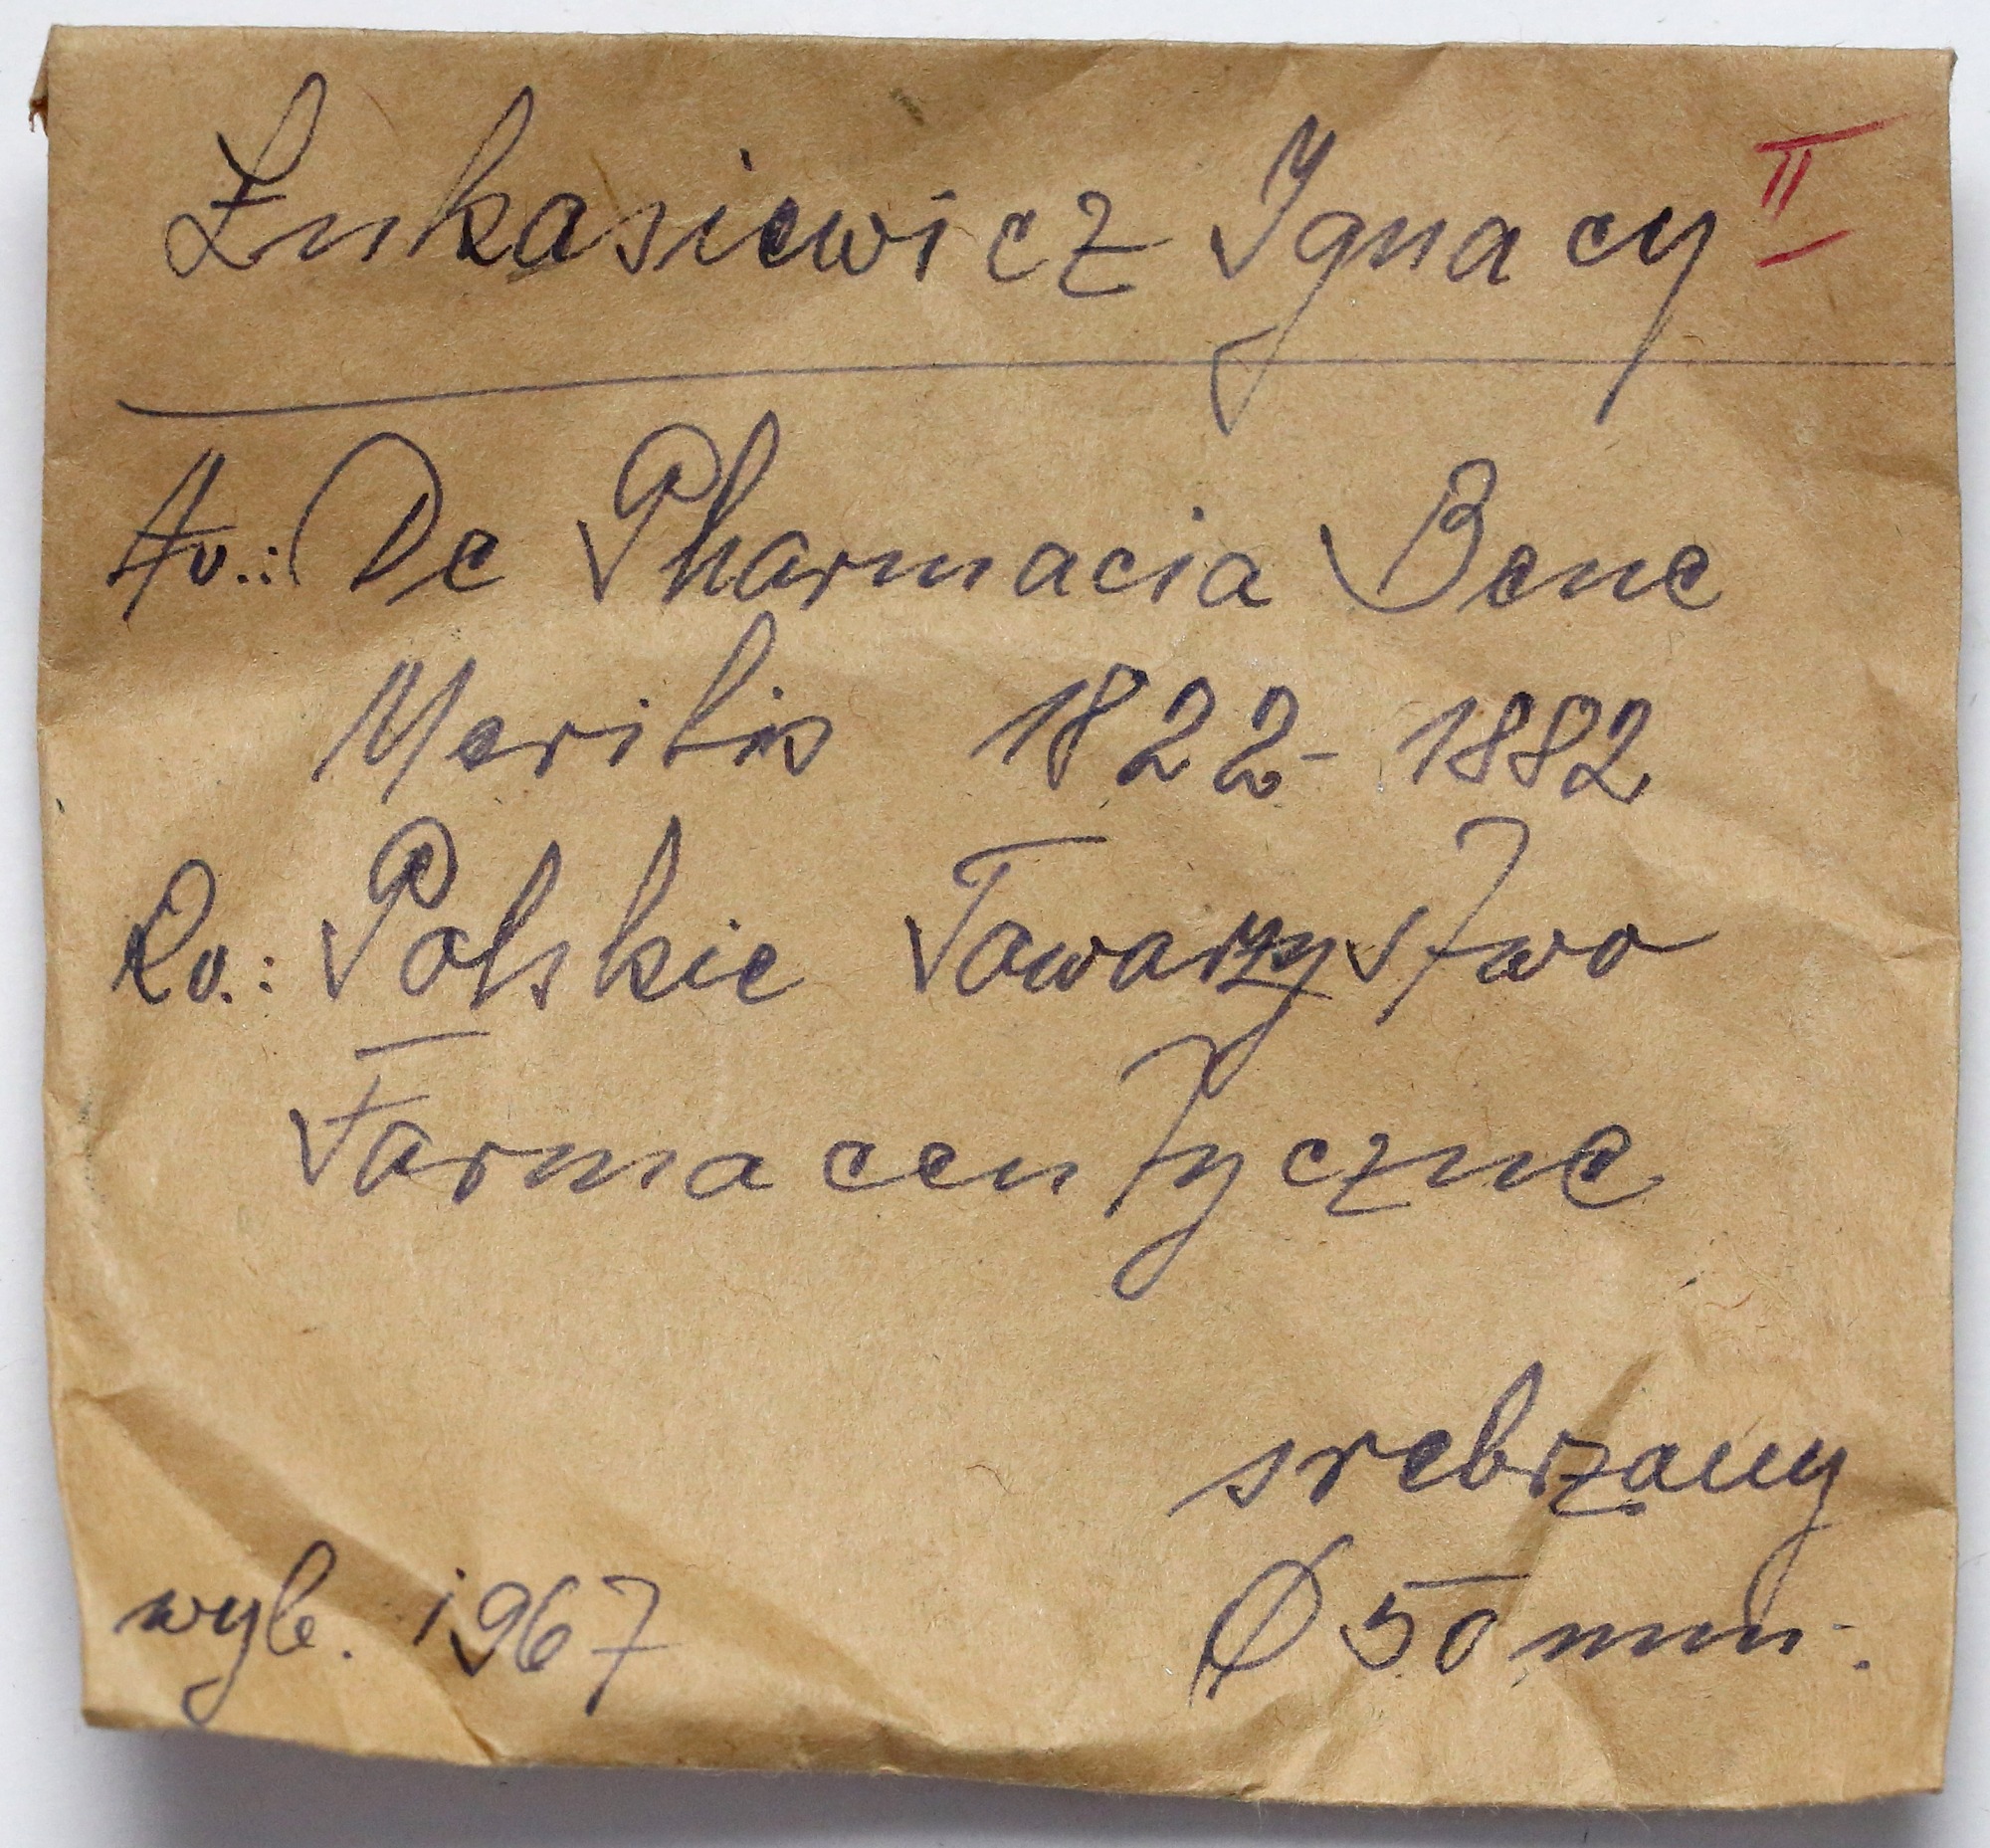 Łukasiewicz Ignacy II
Av.: De Pharmacia Bene
Meritis 1822-1882
Rv.: Polskie Towarzystwo
Farmaceutyczne
srebrzany
Ø 50 mm.
wyb. 1967